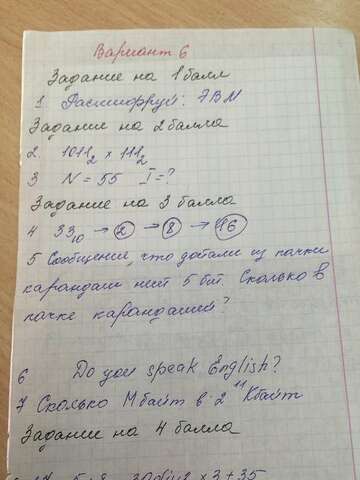 Вариант 6
Задание на 1 балл
1 Расшифруй: АВМ
Задание на 2 балла
2. 1011₂ × 111₂
3 N = 55 I = ?
Задание на 3 балла
4 33₁₀ → 2 → 8 → 16
5 Сообщение, что достали из пачки
карандаш несёт 5 бит. Сколько в
пачке карандашей?
6 Do you speak English?
7 Сколько Мбайт в 2¹¹ Кбайт
Задание на 4 балла